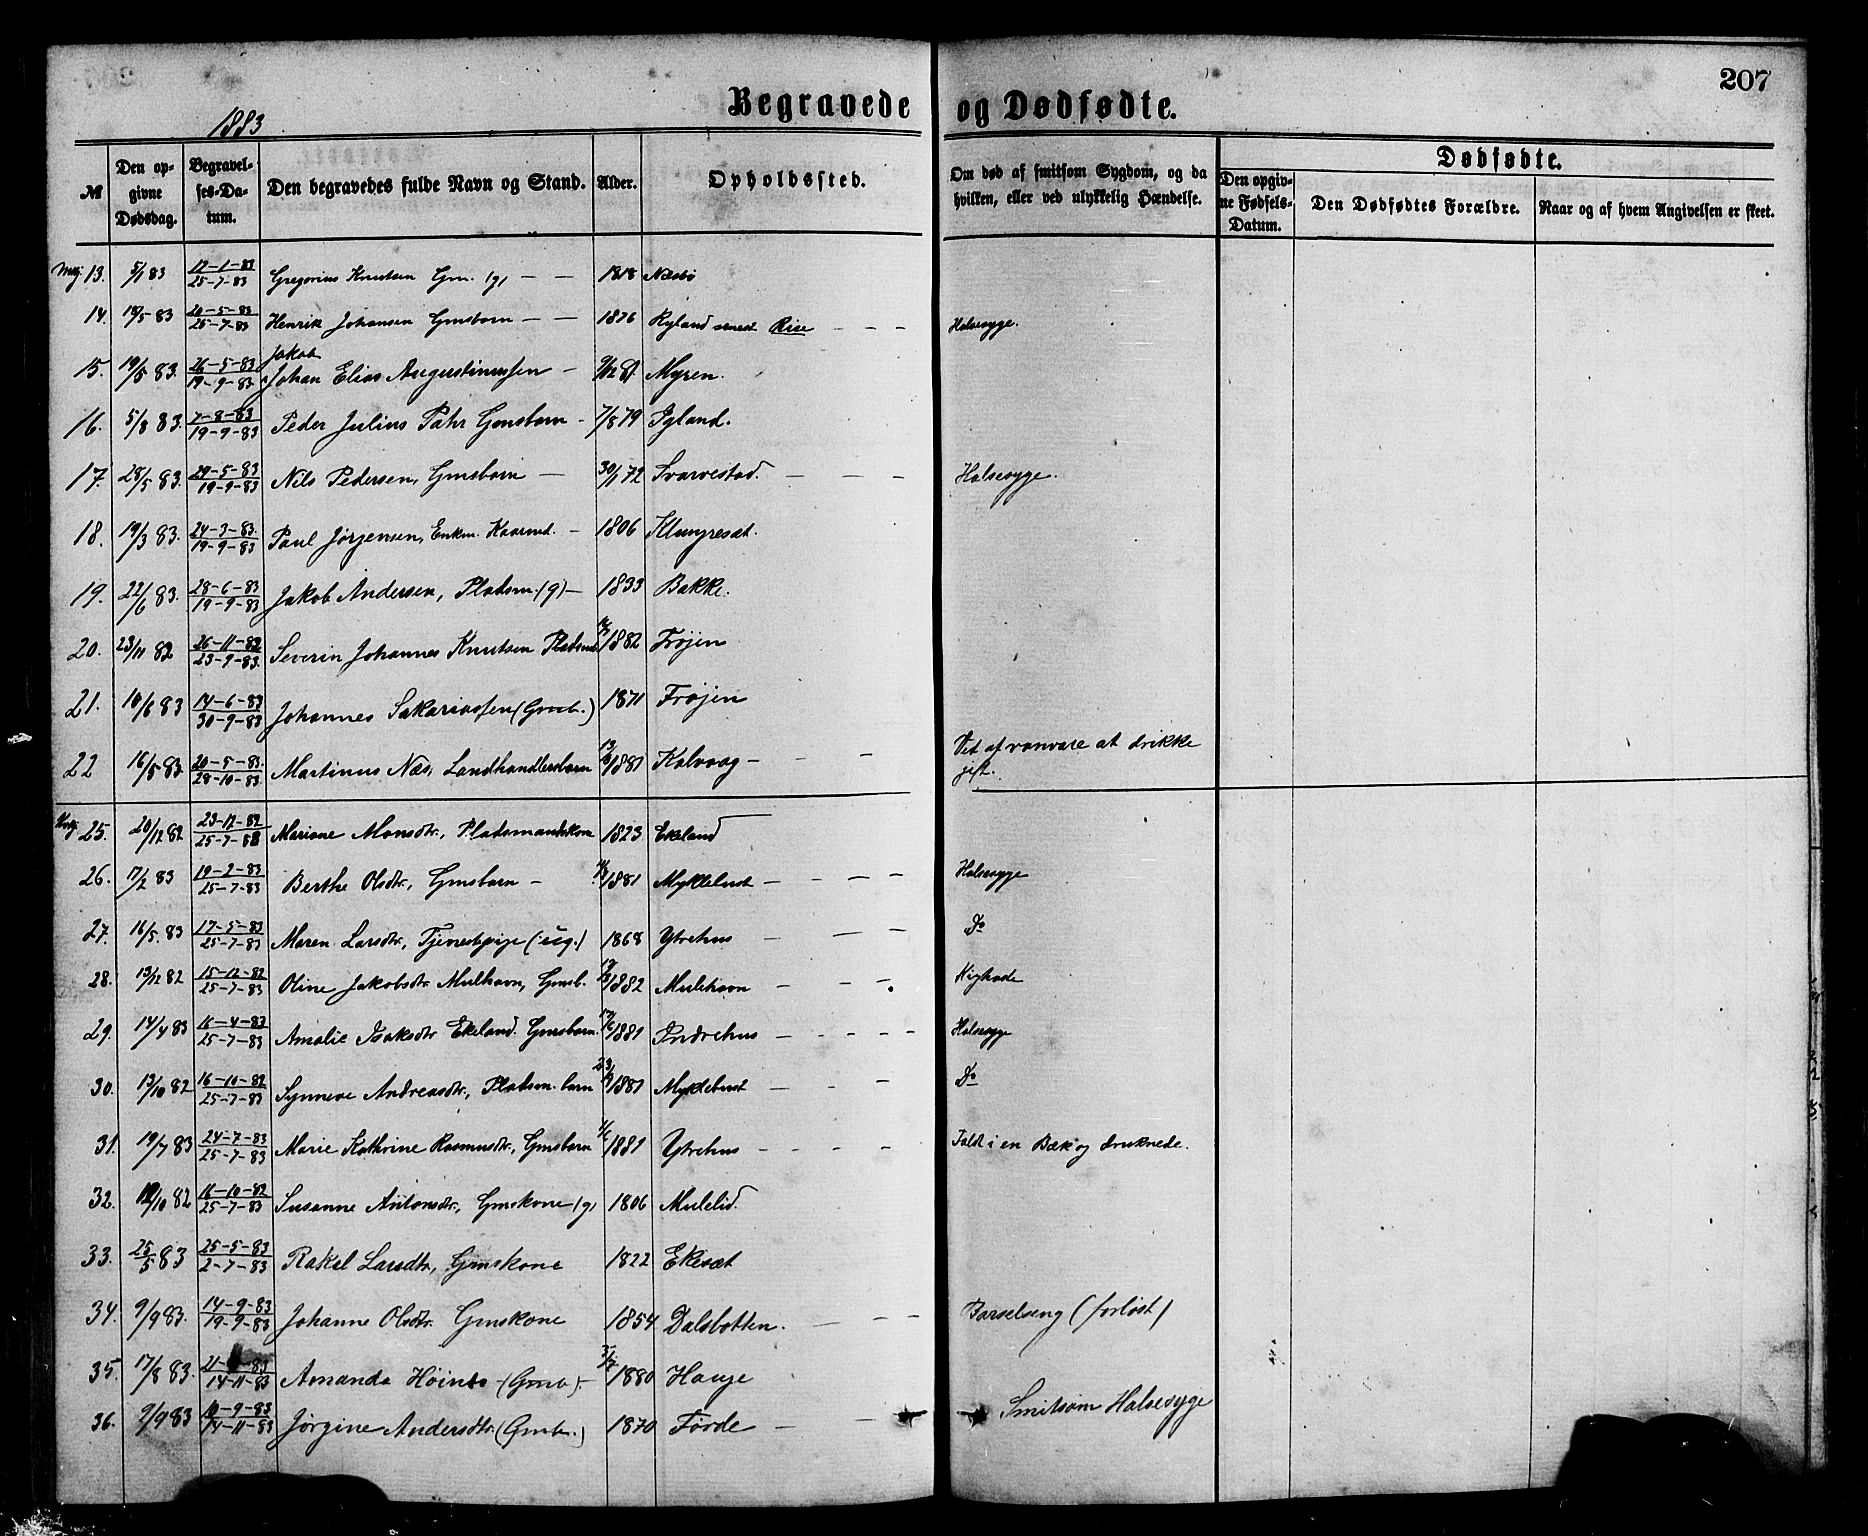 207
1883
Begravede og Dødfødte.
№ Den opgivne Dødsdag. Begravelses-Datum. Den begravedes fulde Navn og Stand. Alder. Opholdssted. Om død af smitsom Sygdom, og da hvilken, eller ved ulykkelig Hændelse. Dødfødte.
Den opgivne Fødsels-Datum. Den Dødfødtes Forældre. Naar og af hvem Angivelsen er skeet.
13. 5/1 83 12-1-83 25-7-83 Gregorius Knutsen Gm. (g) — — 1818 Næsbø
14. 18/5 83 20-5-83 25-7-83 Henrik Johansen Gmsbarn — — 1876 Ryland Rise — — — Halssyge.
15. 19/5 83. 26-5-83 19-9-83 Jakob
Johan Elias Augustinussen — Myren.
16. 5/8 83. 7-8-83 19-9-83 Peder Julius Gmsbarn - 7/8 79 Igland.
17. 28/5 83. 29-5-83 19-9-83 Nils Pedersen, Gmsbarn — 30/1 72 Svarvestad. — — — Halssyge.
18. 19/3 83. 24-3-83. 19-9-83 Paul Jørgensen, Enkm. — 1806 Klungresæt.
19. 22/6 83. 28-6-83 19-9-83 Jakob Andersen, Pladsm. (g) — 1833 Bakke.
20. 23/11 82 26-11-82 23-9-83. Severin Johannes Knutsen 1882 Frøjen
21. 10/6 83 14-6-83 30-9-83 Johannes Sakariassen (Gmb.) 1871 Frøjen
22 16/5 83. 20-5-83. 28-10-83 Martinus Næs, Landhandlersbarn 1881 Kalvaag — — — Ved af vanvare at drikke
gift.
25. 20/12 82 23-12-82 Mariane Monsdtr., Pladsmandskone 1823 Ekeland
26. 17/2 83 19-2-83 25-7-83 Berthe Olsdtr., Gmsbarn — 1881 Myklebust — — — — Halssyge
27. 16/5. 83 17-5-83 25-7-83 Maren Larsdtr., Tjenestpige (ug.) 1868 Ytrehus — — — Do
28. 13/12 82 15-12-82 25-7-83 Oline Jakobsdtr Mulhavn, Gmsb. 1882 Mulehavn — — — Kighoste
29. 14/4 83 16-4-83 25-7-83 Amalie Isaksdtr Ekeland. Gmsbarn. 1881 Indrehus — — — — — Halssyge
30. 13/10 82 16-10-82 25-7-83 Synneve Andreasdtr., Pladsm. barn 1881 Myklebust — — — Do
31. 19/7 83 24-7-83 25-7-83 Marie Kathrine Rasmusdtr., Gmsbarn 1881 Ytrehus — — — — Faldt i en Bæk og druknede.
32. 16-10-82 25-7-83 Susanne Antonsdtr., Gmskone (g) 1806 Mulelid.
33. 25/5 83 25-5-83 2-7-83 Rakel Larsdtr., Gmskone 1822 Ekesæt
34. 9/9 83. 14-9-83 19-9-83 Johanne Olsdtr. Gmskone 1854 Dalsbotten. — — — Barselseng (forløst)
35. 17/8 83. 14-11-83 Amanda (Gmb). 1880 Hauge
36. 2/9 83 10-9-83 14-11-83 Jørgine Andersdtr. (Gmb.) 1870 Førde — — Smitsom Halssyge